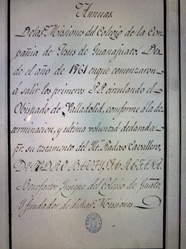 Annuas
De las Missiones del Colegio de la Com
pañia de Jesus de Guanajuato. Des
de el año de 1761 enque comenzaron
à salir los primeros P.P. circulando el
Obispado de Valladolid, conforme ala de
terminacion, y ultima voluntad dexada
por su testamento del
Dn. PEDRO BAUTISTA
Benefactor Insigne del Colegio de Guato.
y fundador de dichas Missiones